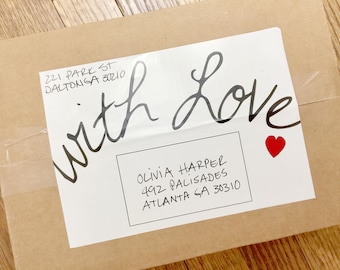 221 PARK ST
DALTON GA 30210
with Love
OLIVIA HARPER
492 PALISADES
ATLANTA GA 30310